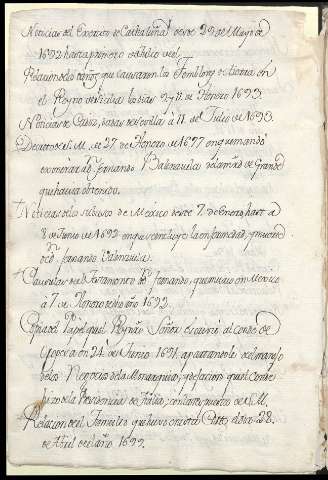 Noticias del Exercito de Cathaluña desde 29 de Mayo de
1692 hasta primero de Julio del.
Relacion de los daños que causaron los Temblores de tierra en
el Reyno de Sicilia los dias 9 y 11 de Henero 1693.
Noticias de Cadiz, dadas de Sevilla à 11 de Julio de 1693.
Decreto de S. M. de 27 de Henero de 1677 en que mandó
exonerar a Dn. Fernando Balenzuela de la mrd. de Grande
que havia obtenido.
+ Noticias de lo sucedido de Mexico desde 7 de Enero hasta
8 de Junio de 1692 en que se incluye la enfermedad, y muerte
de Dn. Fernando Valenzuela.
+ Clausulas del Testamento de Dn. Fernando, que murio en Mexico
à 7 de Henero de dicho año 1692.
Copia del Papel que el Rey nro. Señor escrivió al Conde de
Oropesa en 24 de Junio 1691, apartandole del manejo
de los Negocios de la Monarquia, y dejacion que el Conde
hizo de la Presidencia de Italia, con la respuesta de S. M.
Relacion del Tumulto que huvo en esta Corte el dia 28.
de Abril de el año 1699.